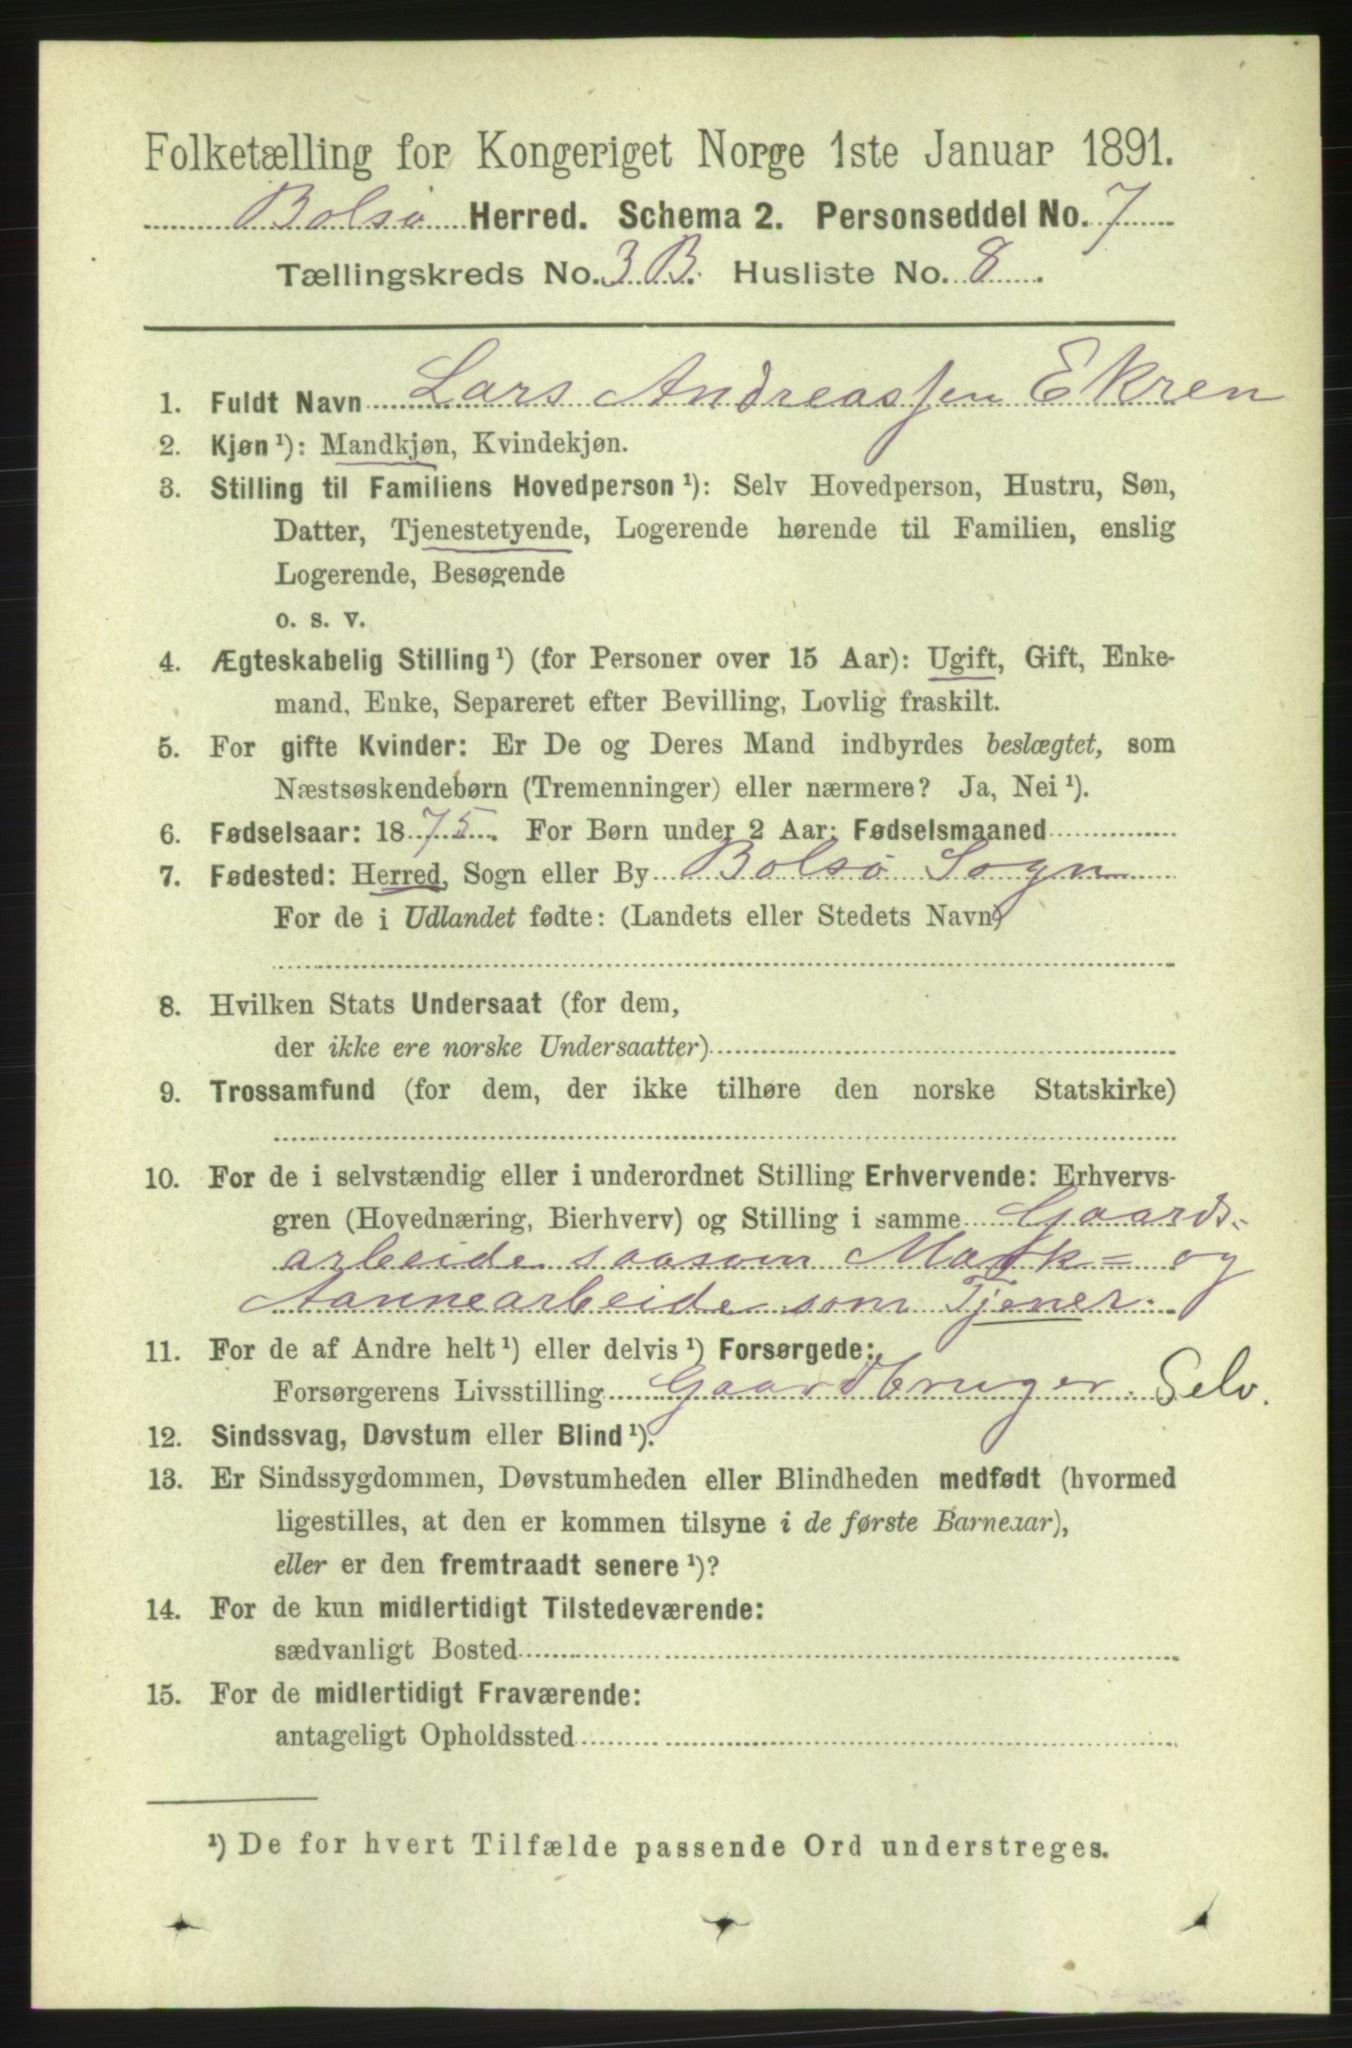 Folketælling for Kongeriget Norge 1ste Januar 1891.
Bolsø Herred. Schema 2. Personseddel No. 7
Tællingskreds No. 3 B. Husliste No. 8.
1. Fuldt Navn Lars Andreassen Ekren
2. Kjøn ¹): Mandkjøn, Kvindekjøn.
3. Stilling til Familiens Hovedperson ¹): Selv Hovedperson, Hustru, Søn,
Datter, Tjenestetyende, Logerende hørende til Familien, enslig
Logerende, Besøgende
o. s. v.
4. Ægteskabelig Stilling ¹) (for Personer over 15 Aar): Ugift, Gift, Enke-
mand, Enke, Separeret efter Bevilling, Lovlig fraskilt.
5. For gifte Kvinder: Er De og Deres Mand indbyrdes beslægtet, som
Næstsøskendebørn (Tremenninger) eller nærmere? Ja, Nei ¹).
6. Fødselsaar: 1875. For Børn under 2 Aar: Fødselsmaaned
7. Fødested: Herred, Sogn eller By Bolsø Sogn
For de i Udlandet fødte: (Landets eller Stedets Navn)
8. Hvilken Stats Undersaat (for dem,
der ikke ere norske Undersaatter)
9. Trossamfund (for dem, der ikke tilhøre den norske Statskirke)
10. For de i selvstændig eller i underordnet Stilling Erhvervende: Erhvervs-
gren (Hovednæring, Bierhverv) og Stilling i samme Gaards-
arbeide saasom Mark= og
Aannearbeide som Tjener.
11. For de af Andre helt ¹) eller delvis ¹) Forsørgede:
Forsørgerens Livsstilling Gaardbruger. Selv.
12. Sindssvag, Døvstum eller Blind ¹).
13. Er Sindssygdommen, Døvstumheden eller Blindheden medfødt (hvormed
ligestilles, at den er kommen tilsyne i de første Barneaar),
eller er den fremtraadt senere ¹)?
14. For de kun midlertidigt Tilstedeværende:
sædvanligt Bosted
15. For de midlertidigt Fraværende:
antageligt Opholdssted
¹) De for hvert Tilfælde passende Ord understreges.